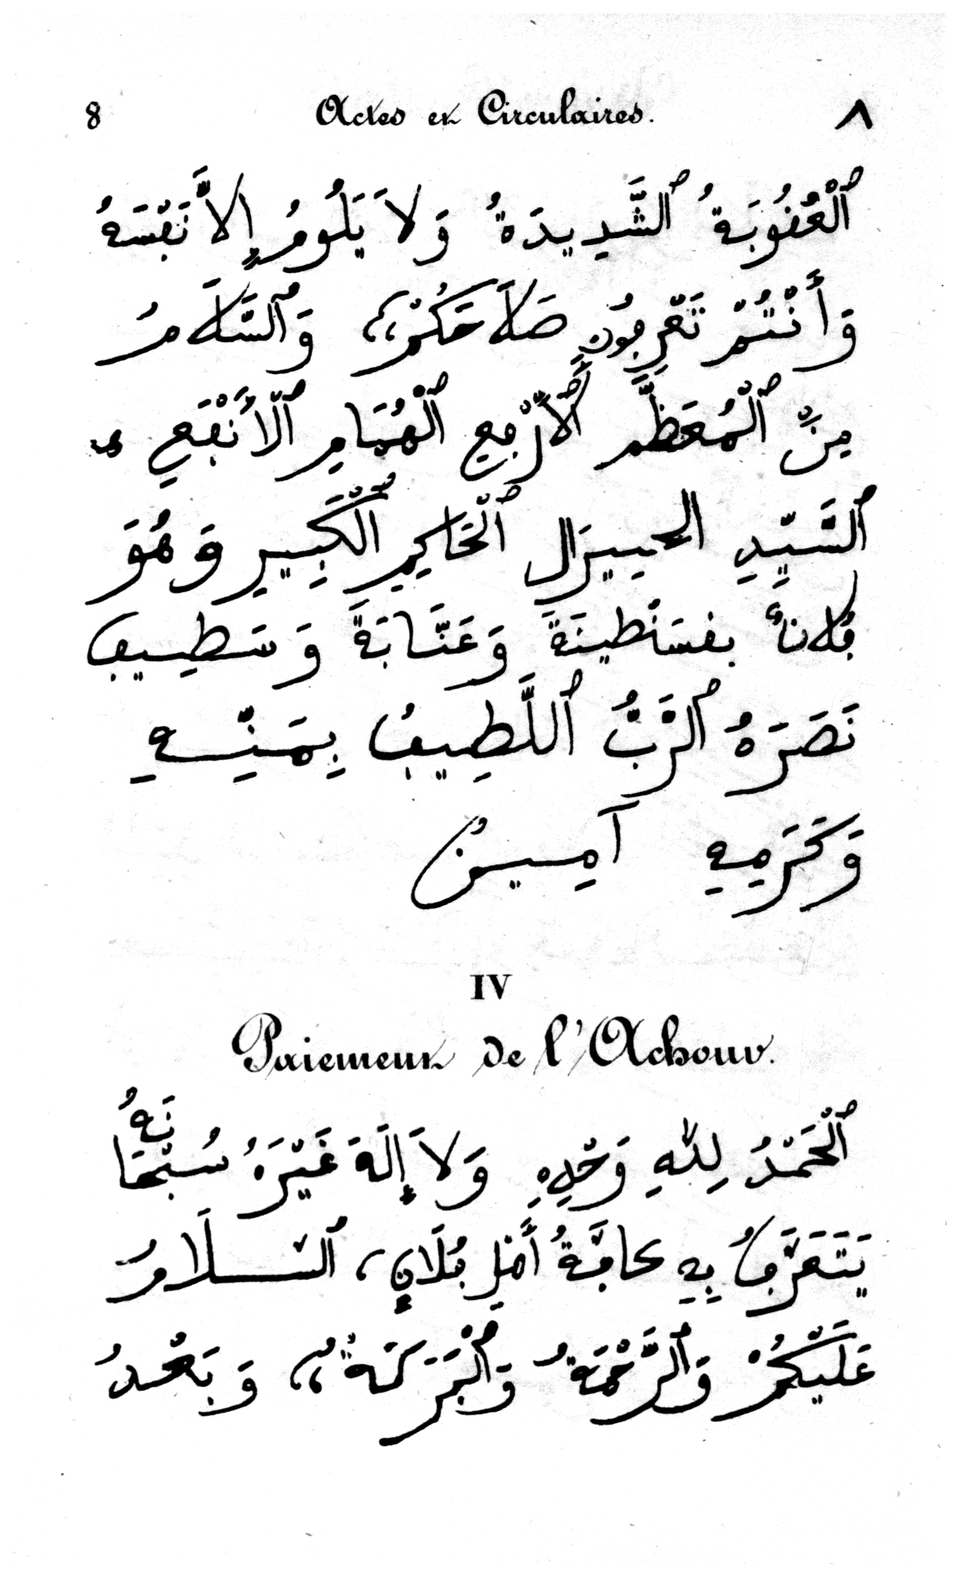 8 Actes et Circulaires. ٨
ٱلْعُقُوبَةُ ٱلشَّدِيدَةُ وَلاَ يَلُومُ إِلاَّ نَفْسَهُ
وَأَنْتُمْ تَعْرِفُونَ صَلاَحَكُمْ،، وَٱلسَّلاَمُ
مِنَ ٱلْمُعَظَّمِ ٱلْأَرْفَعِ ٱلْهُمَامِ ٱلْأَنْفَعِ
ٱلسَّيِّدِ الجينرال ٱلْحَاكِمِ ٱلْكَبِيرِ وَهُوَ
فلان بقسَنْطِينَةَ وَعَنَّابَةَ وَسَطِيف
نَصَرَهُ ٱلرَّبُّ ٱللَّطِيفُ بِمَنِّهِ
وَكَرَمِهِ آمِين
IV
Paiement de l'Achour.
ٱلْحَمْدُ لِلهِ وَحْدِهِ وَلاَ إِلَهَ غَيْرَهُ سُبْحَانَهُ
يَتَعَرَّفُ بِهِ كافَّةُ أَهْلِ فُلَانٍ، ٱلسَّلَامُ
عَلَيْكُمْ وَٱلرَّحْمَةُ وَٱلْبَرَكَةُ،، وَبَعْدُ